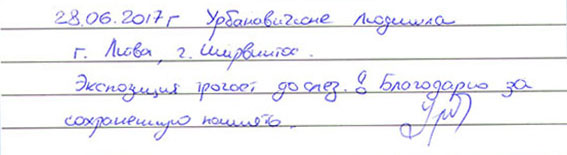 28.06.2017 г Урбановичене Людмила
г. Литва, г. Ширвинтос.
Экспозиция трогает до слез. Благодарю за
сохраненную память.